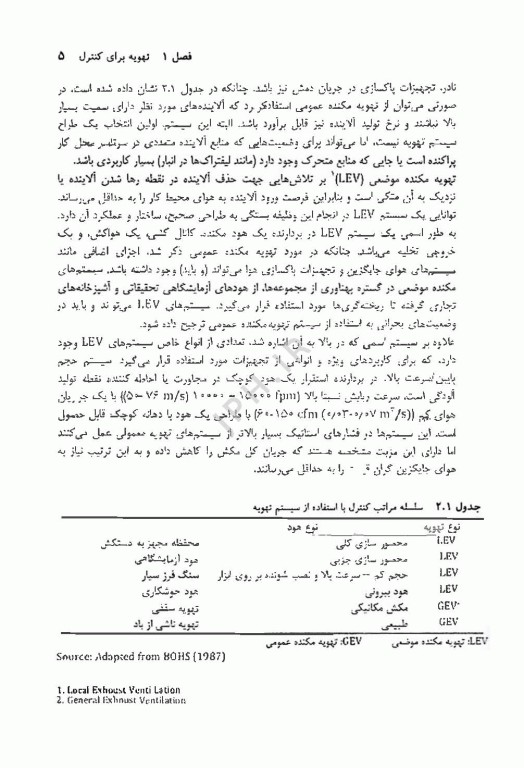 فصل ۱ تهویه برای کنترل ۵
نادر، تجهیزات پاکسازی در جریان دمش نیز باشد. چنانکه در جدول ۲.۱ نشان داده شده است، در
صورتی می‌توان از تهویه مکنده عمومی استفاده کرد که آلاینده‌های مورد نظر دارای سمیت بسیار
بالا نباشند و نرخ تولید آلاینده نیز قابل برآورد باشد. البته این سیستم، اولین انتخاب یک طراح
سیستم تهویه نیست، اما می‌تواند برای وضعیت‌هایی که منابع آلاینده متعددی در سرتاسر محل کار
پراکنده است یا جایی که منابع متحرک وجود دارد (مانند لیفتراک‌ها در انبار) بسیار کاربردی باشد.
تهویه مکنده موضعی (LEV)۱ بر تلاش‌هایی جهت حذف آلاینده در نقطه رها شدن آلاینده یا
نزدیک به آن متکی است و بنابراین فرصت ورود آلاینده به هوای محیط کار را به حداقل می‌رساند.
توانایی یک سیستم LEV در انجام این وظیفه بستگی به طراحی صحیح، ساختار و عملکرد آن دارد.
به طور اسمی یک سیستم LEV در بردارنده یک هود مکنده، کانال کشی، یک هواکش، و یک
خروجی تخلیه می‌باشد. چنانکه در مورد تهویه مکنده عمومی ذکر شد، اجزای اضافی مانند
سیستم‌های هوای جایگزین و تجهیزات پاکسازی هوا می‌تواند (و باید) وجود داشته باشد. سیستم‌های
مکنده موضعی در گستره پهناوری از مجموعه‌ها، از هودهای آزمایشگاهی تحقیقاتی و آشپزخانه‌های
تجاری گرفته تا ریخته‌گری‌ها مورد استفاده قرار می‌گیرد. سیستم‌های LEV می‌تواند و باید در
وضعیت‌های بحرانی به استفاده از سیستم تهویه مکنده عمومی ترجیح داده شود.
علاوه بر سیستم اسمی که در بالا به آن اشاره شد، تعدادی از انواع خاص سیستم‌های LEV وجود
دارد، که برای کاربردهای ویژه و انواعی از تجهیزات مورد استفاده قرار می‌گیرد. سیستم حجم
پایین/سرعت بالا، در بردارنده استقرار یک هود کوچک در مجاورت یا احاطه کننده نقطه تولید
آلودگی است، سرعت ربایش نسبتا بالا (۱۰۰۰۰ – ۱۵۰۰۰ fpm (۵۰–۷۶ m/s)) با یک جریان
هوای کم با طراحی یک هود با دهانه کوچک قابل حصول
است. این سیستم‌ها در فشارهای استاتیک بسیار بالاتر از سیستم‌های تهویه معمولی عمل می‌کنند
اما دارای این مزیت مشخصه هستند که جریان کل مکش را کاهش داده و به این ترتیب نیاز به
هوای جایگزین گران را به حداقل می‌رسانند.
جدول ۲.۱ سلسله مراتب کنترل با استفاده از سیستم تهویه
نوع تهویه نوع هود
LEV محصور سازی کلی محفظه مجهز به دستکش
LEV محصور سازی جزیی هود آزمایشگاهی
LEV حجم کم – سرعت بالا و نصب شونده بر روی ابزار سنگ فرز سیار
LEV هود بیرونی هود جوشکاری
GEV۲ مکش مکانیکی تهویه سقفی
GEV طبیعی تهویه ناشی از باد
LEV: تهویه مکنده موضعی GEV: تهویه مکنده عمومی
Source: Adapted from BOHS (1987)
1. Local Exhoust Venti Lation
2. General Exhoust Ventilation